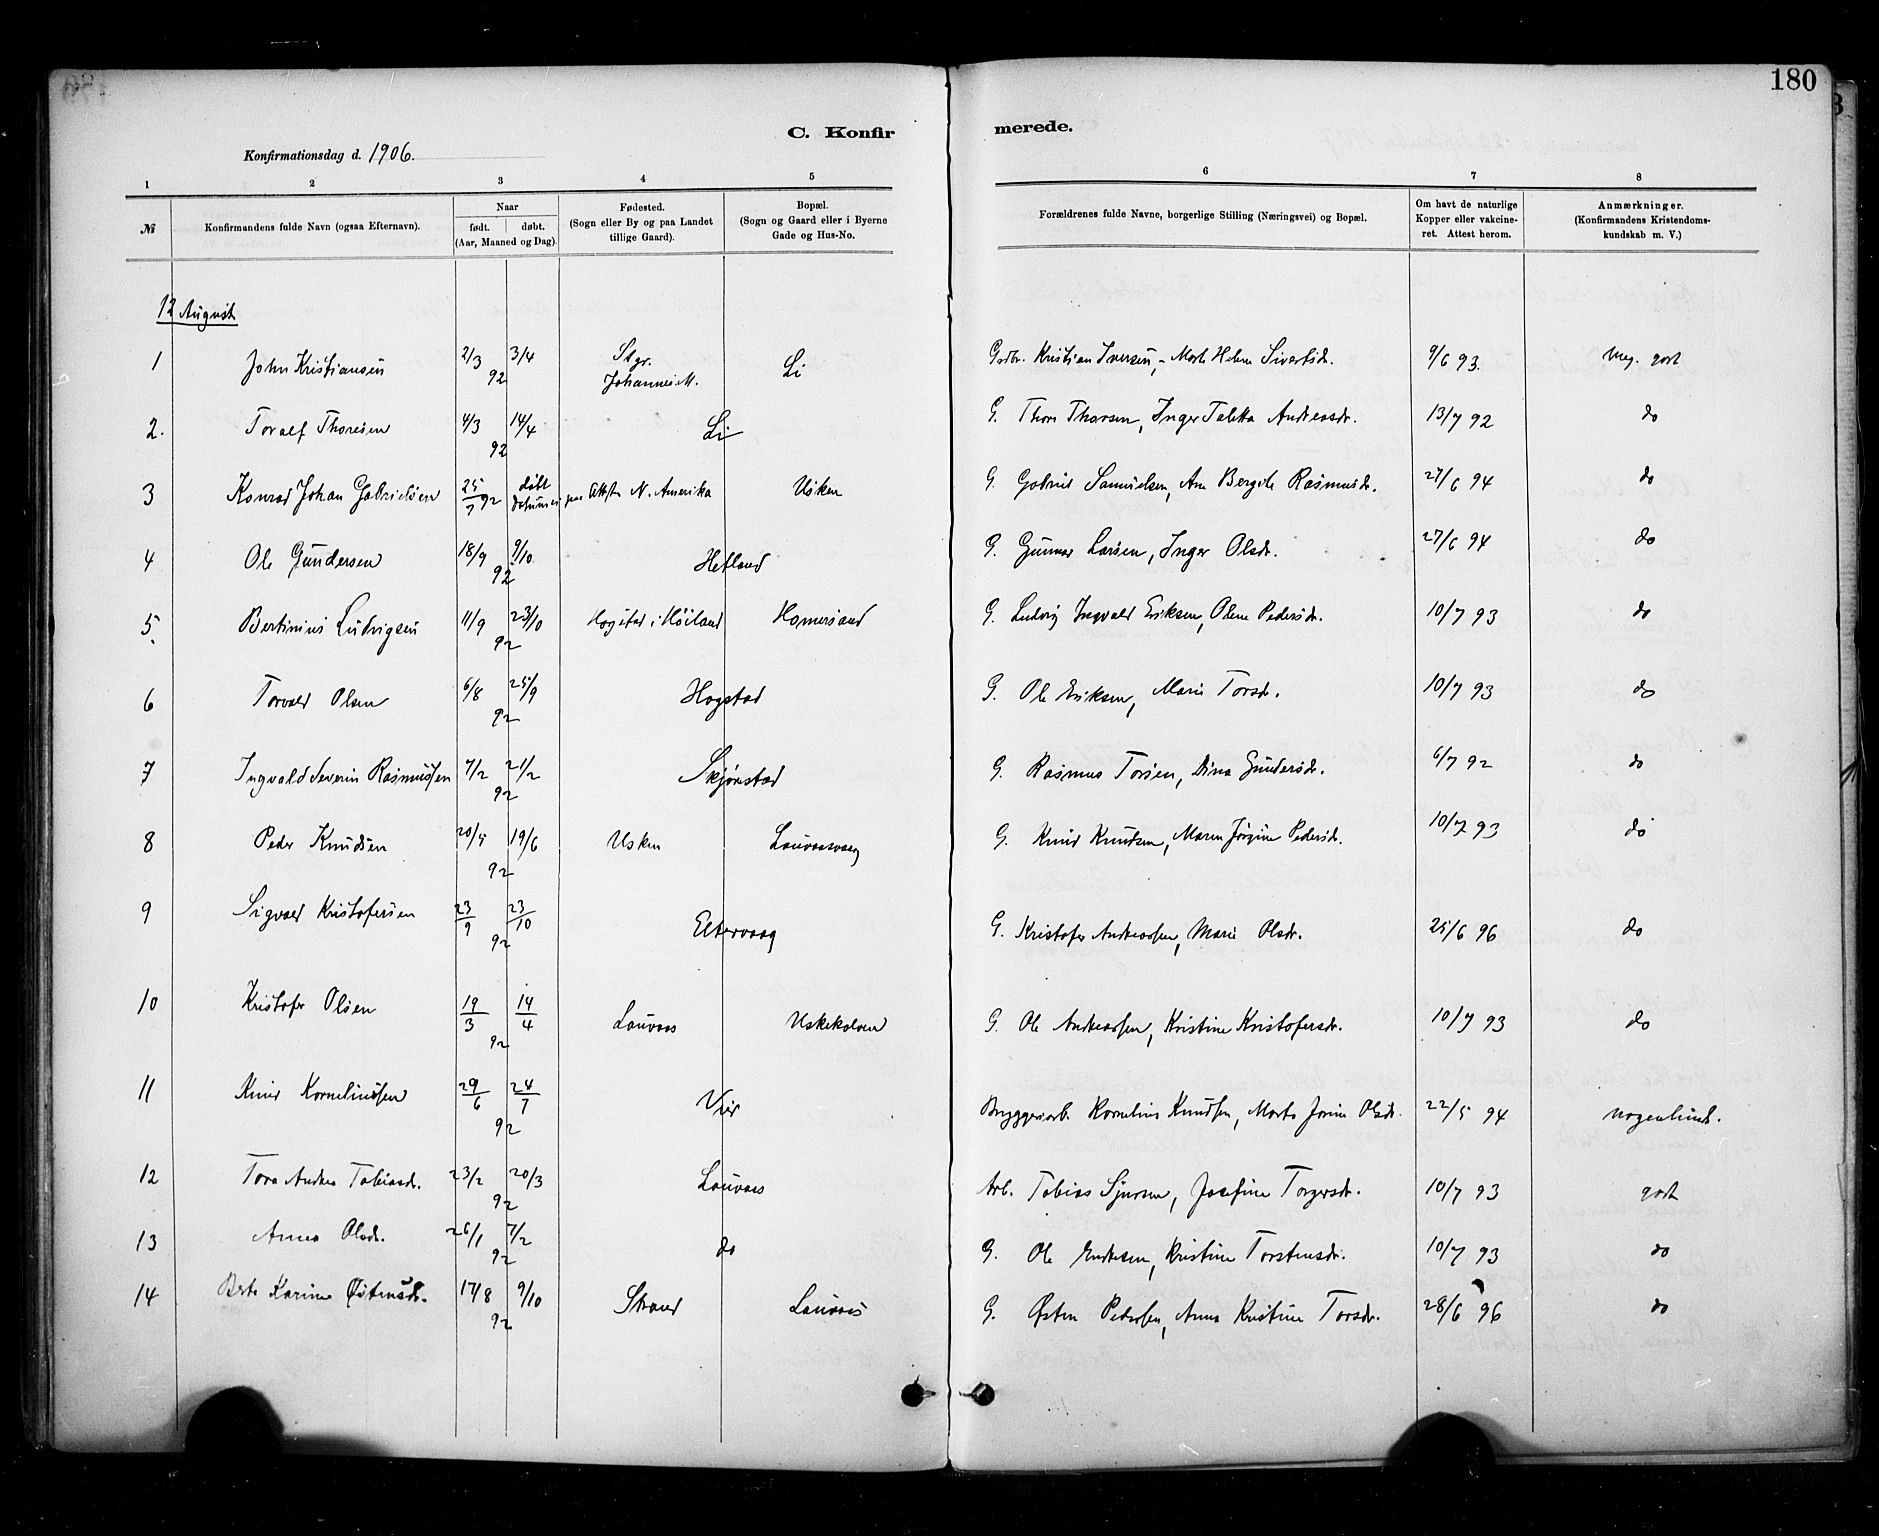 180
C. Konfir merede.
Konfirmationsdag d. 1906.
1 2 3 4 5 6 7 8
№ Konfirmandens fulde Navn (ogsaa Efternavn). Naar født. døbt. (Aar, Maaned og Dag). Fødested. (Sogn eller By og paa Landet tillige Gaard). Bopæl. (Sogn og Gaard eller i Byerne Gade og Hus-No. Forældrenes fulde Navne, borgerlige Stilling (Næringsvei) og Bopæl. Om havt de naturlige Kopper eller vakcineret. Attest herom. Anmærkninger. (Konfirmandens Kristendomskundskab m. V.)
12 August
1 John Kristiansen 2/3 92 3/4 Stgr. Johannes M. Li Gdbr. Kristian Iversen, Helene Sivertsdr. 9/6 93. meg. godt
2. Toralf Thoresen 4/3 92 14/4 Li G. Thore Thorsen, Inger Taletta Andreasdr. 13/7 92 do
3 Konrad Johan Gabrielsen 25/7 92 døbt paa N. Amerika Usken G. Gabriel Samuelsen, Ane Bergite Rasmusdr. 27/6 94 do
4 Ole Gundersen 18/9 92 9/10 Hetland G. Gunnar Larsen, Inger Olsdr. 27/6 94 do
5 Bertinius Ludvigsen 11/9 92 23/10 Hogstad i Høiland Homersand G. Ludvig Ingvald Eriksen, Olene Pedersdr. 10/7 93 do
6 Torvald Olsen 6/8 92 25/9 Hogstad G. Ole Eriksen, Marie Torsdr. 10/7 93 do
7 Ingvald Severin Rasmussen 7/2 92 21/2 Skjørestad G. Rasmus Torsen, Dina Gundersdr. 6/7 92 do
8 Peder Knudsen 20/5 92 19/6 Usken Lauvaasvaag G. Knud Knudsen, Maren Jørgine Pedersdr. 10/7 93 do
9 Sigvald Kristofersen 23/9 92 23/10 Eltervaag G. Kristofer Andreassen, Marie Olsdr. 25/6 96 do
10 Kristofer Olsen 19/3 92 14/4 Lauvaas Uskekalven G. Ole Andreassen, Kristine Kristofersdr. 10/7 93 do
11 Knud Korneliussen 29/6 92 24/7 Vier Bryggeriarb. Kornelius Knudsen, Marta Olsdr. 22/5 94 nogenlunde.
12 Tora Andrea Tobiasdr. 23/2 92 20/3 Lauvaas Arb. Tobias Sjursen, Josefine Torgersdr. 10/7 93 godt
13 Anna Olsdr. 26/1 92 7/2 do G. Ole Endresen, Kristine Torstensdr. 10/7 93 do
14 Berta Karine Østensdr. 17/8 92 9/10 Strand Lauvaas G. Østen Pedersen, Anna Kristine Torsdr. 28/6 96 do